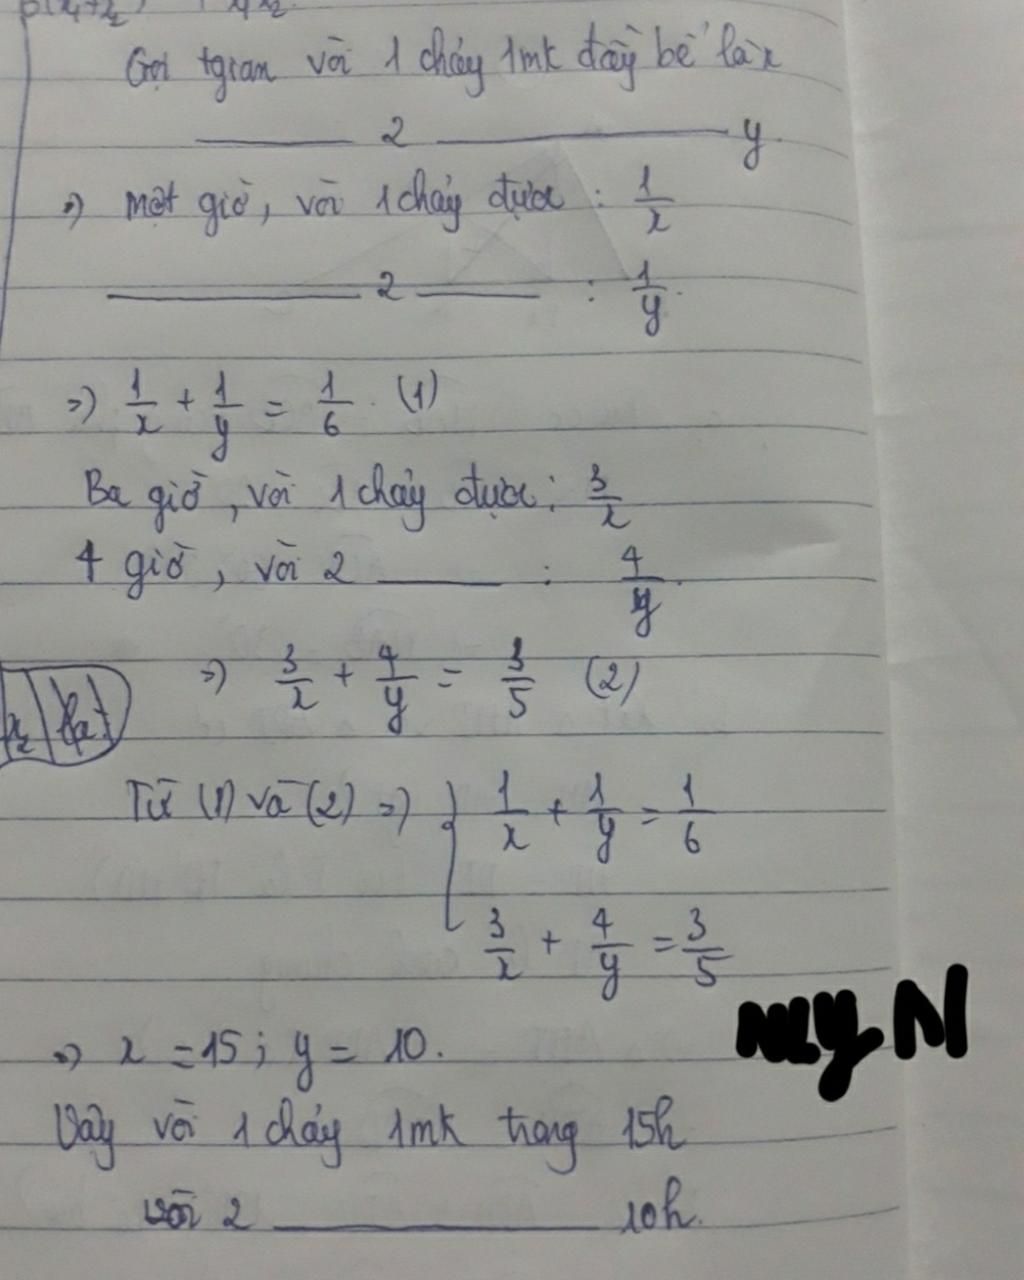 Gọi tgian vòi 1 chảy 1mk đầy bể là x
——— 2 ——————— y
=) một giờ, vòi 1 chảy được : 1/x
——————— 2 ——— : 1/y.
=) 1/x + 1/y = 1/6. (1)
Ba giờ, vòi 1 chảy được: 3/x
4 giờ, vòi 2 ——— : 4/y.
=) 3/x + 4/y = 3/5 (2)
Từ (1) và (2) =) { 1/x + 1/y = 1/6
3/x + 4/y = 3/5
=) x = 15; y = 10.
My N
Vậy vòi 1 chảy 1mk trong 15h
vòi 2 ——————— 10h.